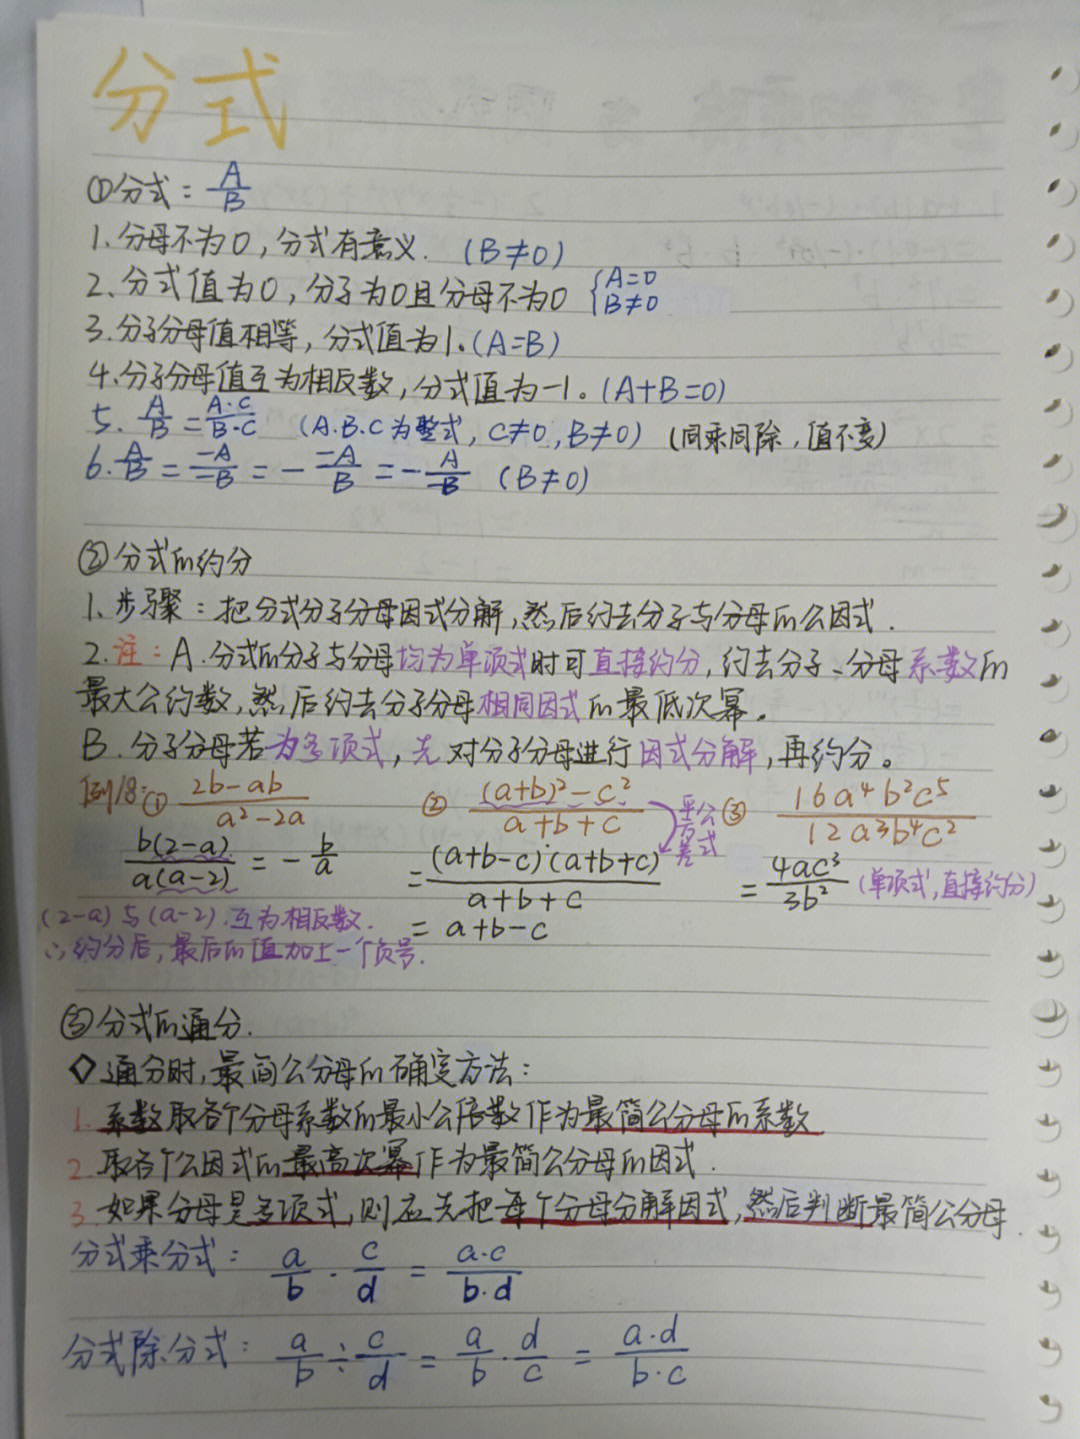 分式
①分式：A/B
1.分母不为0，分式有意义.（B≠0）
2.分式值为0，分子为0且分母不为0 {A=0 B≠0
3.分子分母值相等，分式值为1.（A=B）
4.分子分母值互为相反数，分式值为-1。（A+B=0）
5. A/B = A·C/B·C （A.B.C为整式，C≠0，B≠0）（同乘同除，值不变）
6. A/B = -A/-B = - -A/B = - A/-B （B≠0）
②分式的约分
1.步骤：把分式分子分母因式分解，然后约去分子与分母的公因式.
2.注：A.分式的分子与分母均为单项式时可直接约分，约去分子、分母系数的
最大公约数，然后约去分子分母相同因式的最低次幂。
B.分子分母若为多项式，先对分子分母进行因式分解，再约分。
例18:① 2b-ab/a²-2a ② (a+b)²-c²/a+b+c 平方差公式 ③ 16a⁴b²c⁵/12a³b⁴c²
b(2-a)/a(a-2) = - b/a = (a+b-c)(a+b+c)/a+b+c = 4ac³/3b² (单项式，直接约分)
(2-a)与(a-2).互为相反数. = a+b-c
∴约分后，最后的值加上一个负号.
③分式的通分.
◇通分时，最简公分母的确定方法：
1.系数取各个分母系数的最小公倍数作为最简公分母的系数
2.取各个公因式的最高次幂作为最简公分母的因式.
3.如果分母是多项式，则应先把每个分母分解因式，然后判断最简公分母.
分式乘分式： a/b · c/d = a·c/b·d
分式除分式： a/b ÷ c/d = a/b · d/c = a·d/b·c